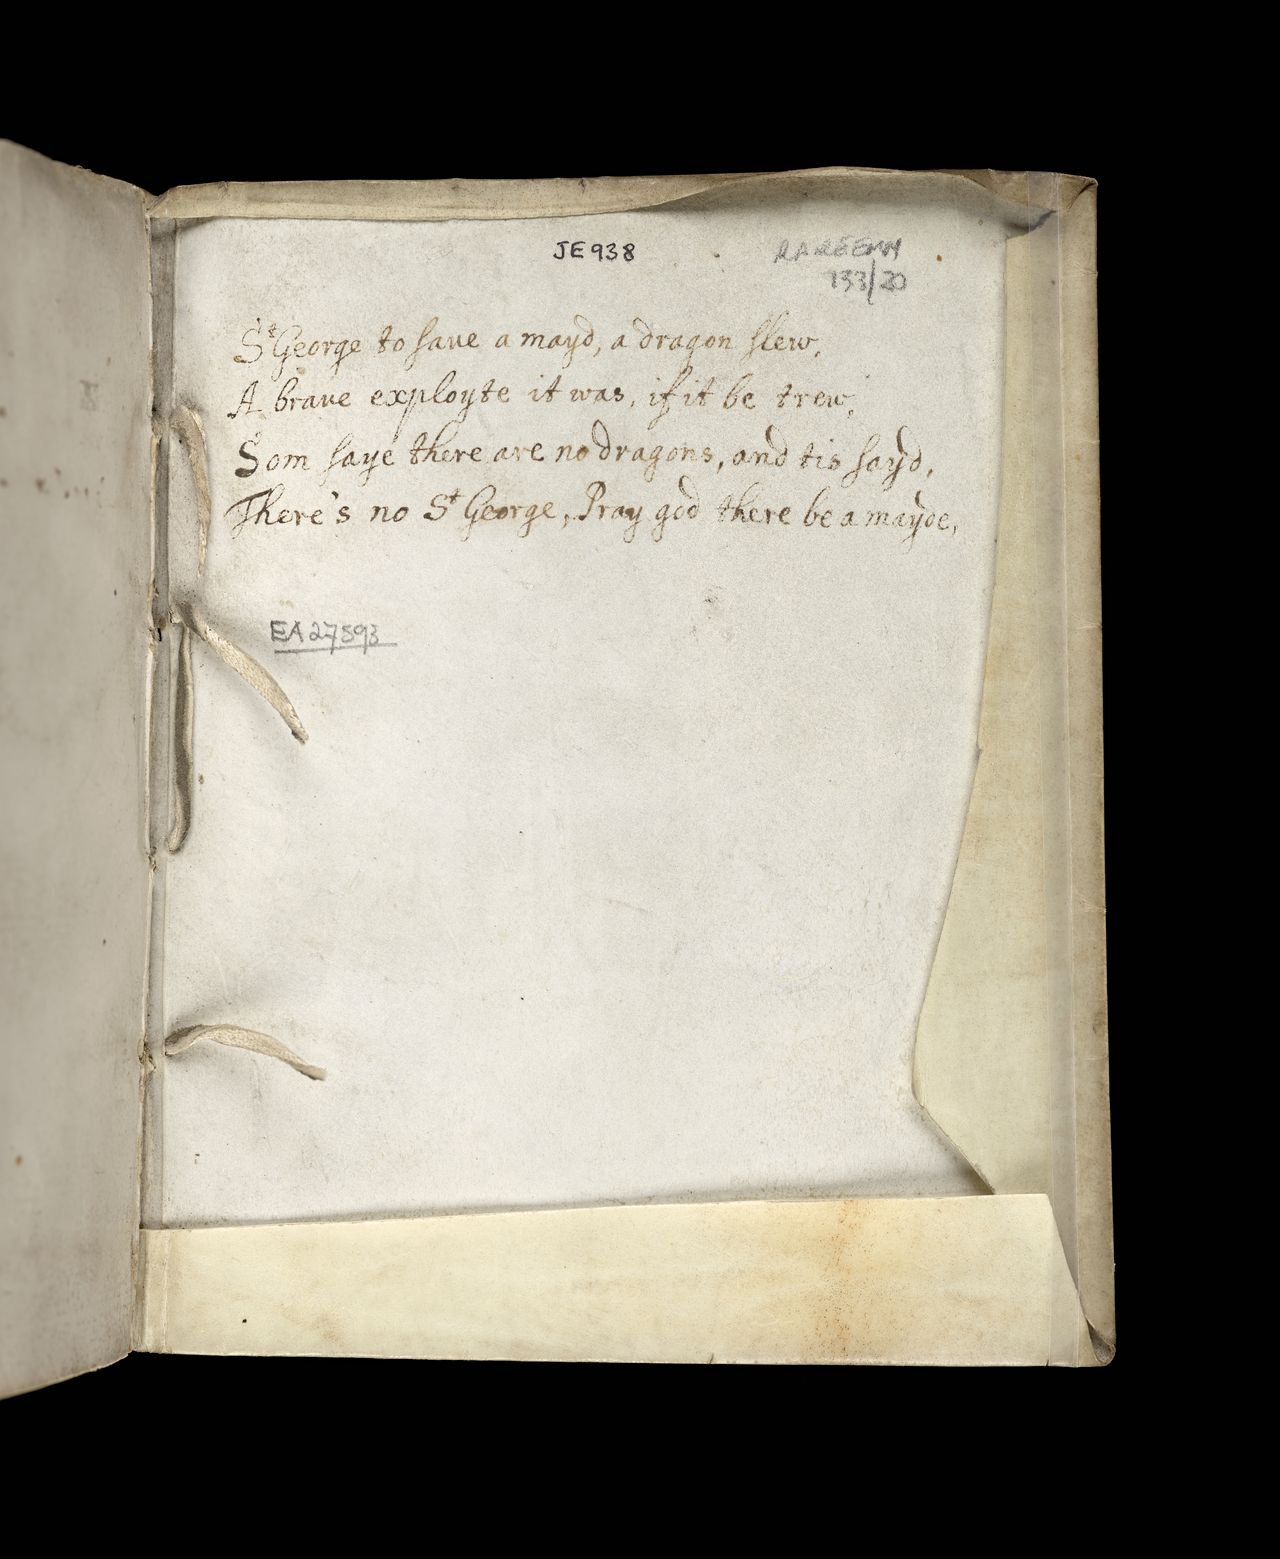 JE938
133/20
St George to saue a mayd, a dragon slew,
A braue exployte it was, if it be trew,
Som saye there are no dragons, and tis sayd,
There's no St George, Pray god there be a mayde,
EA27593